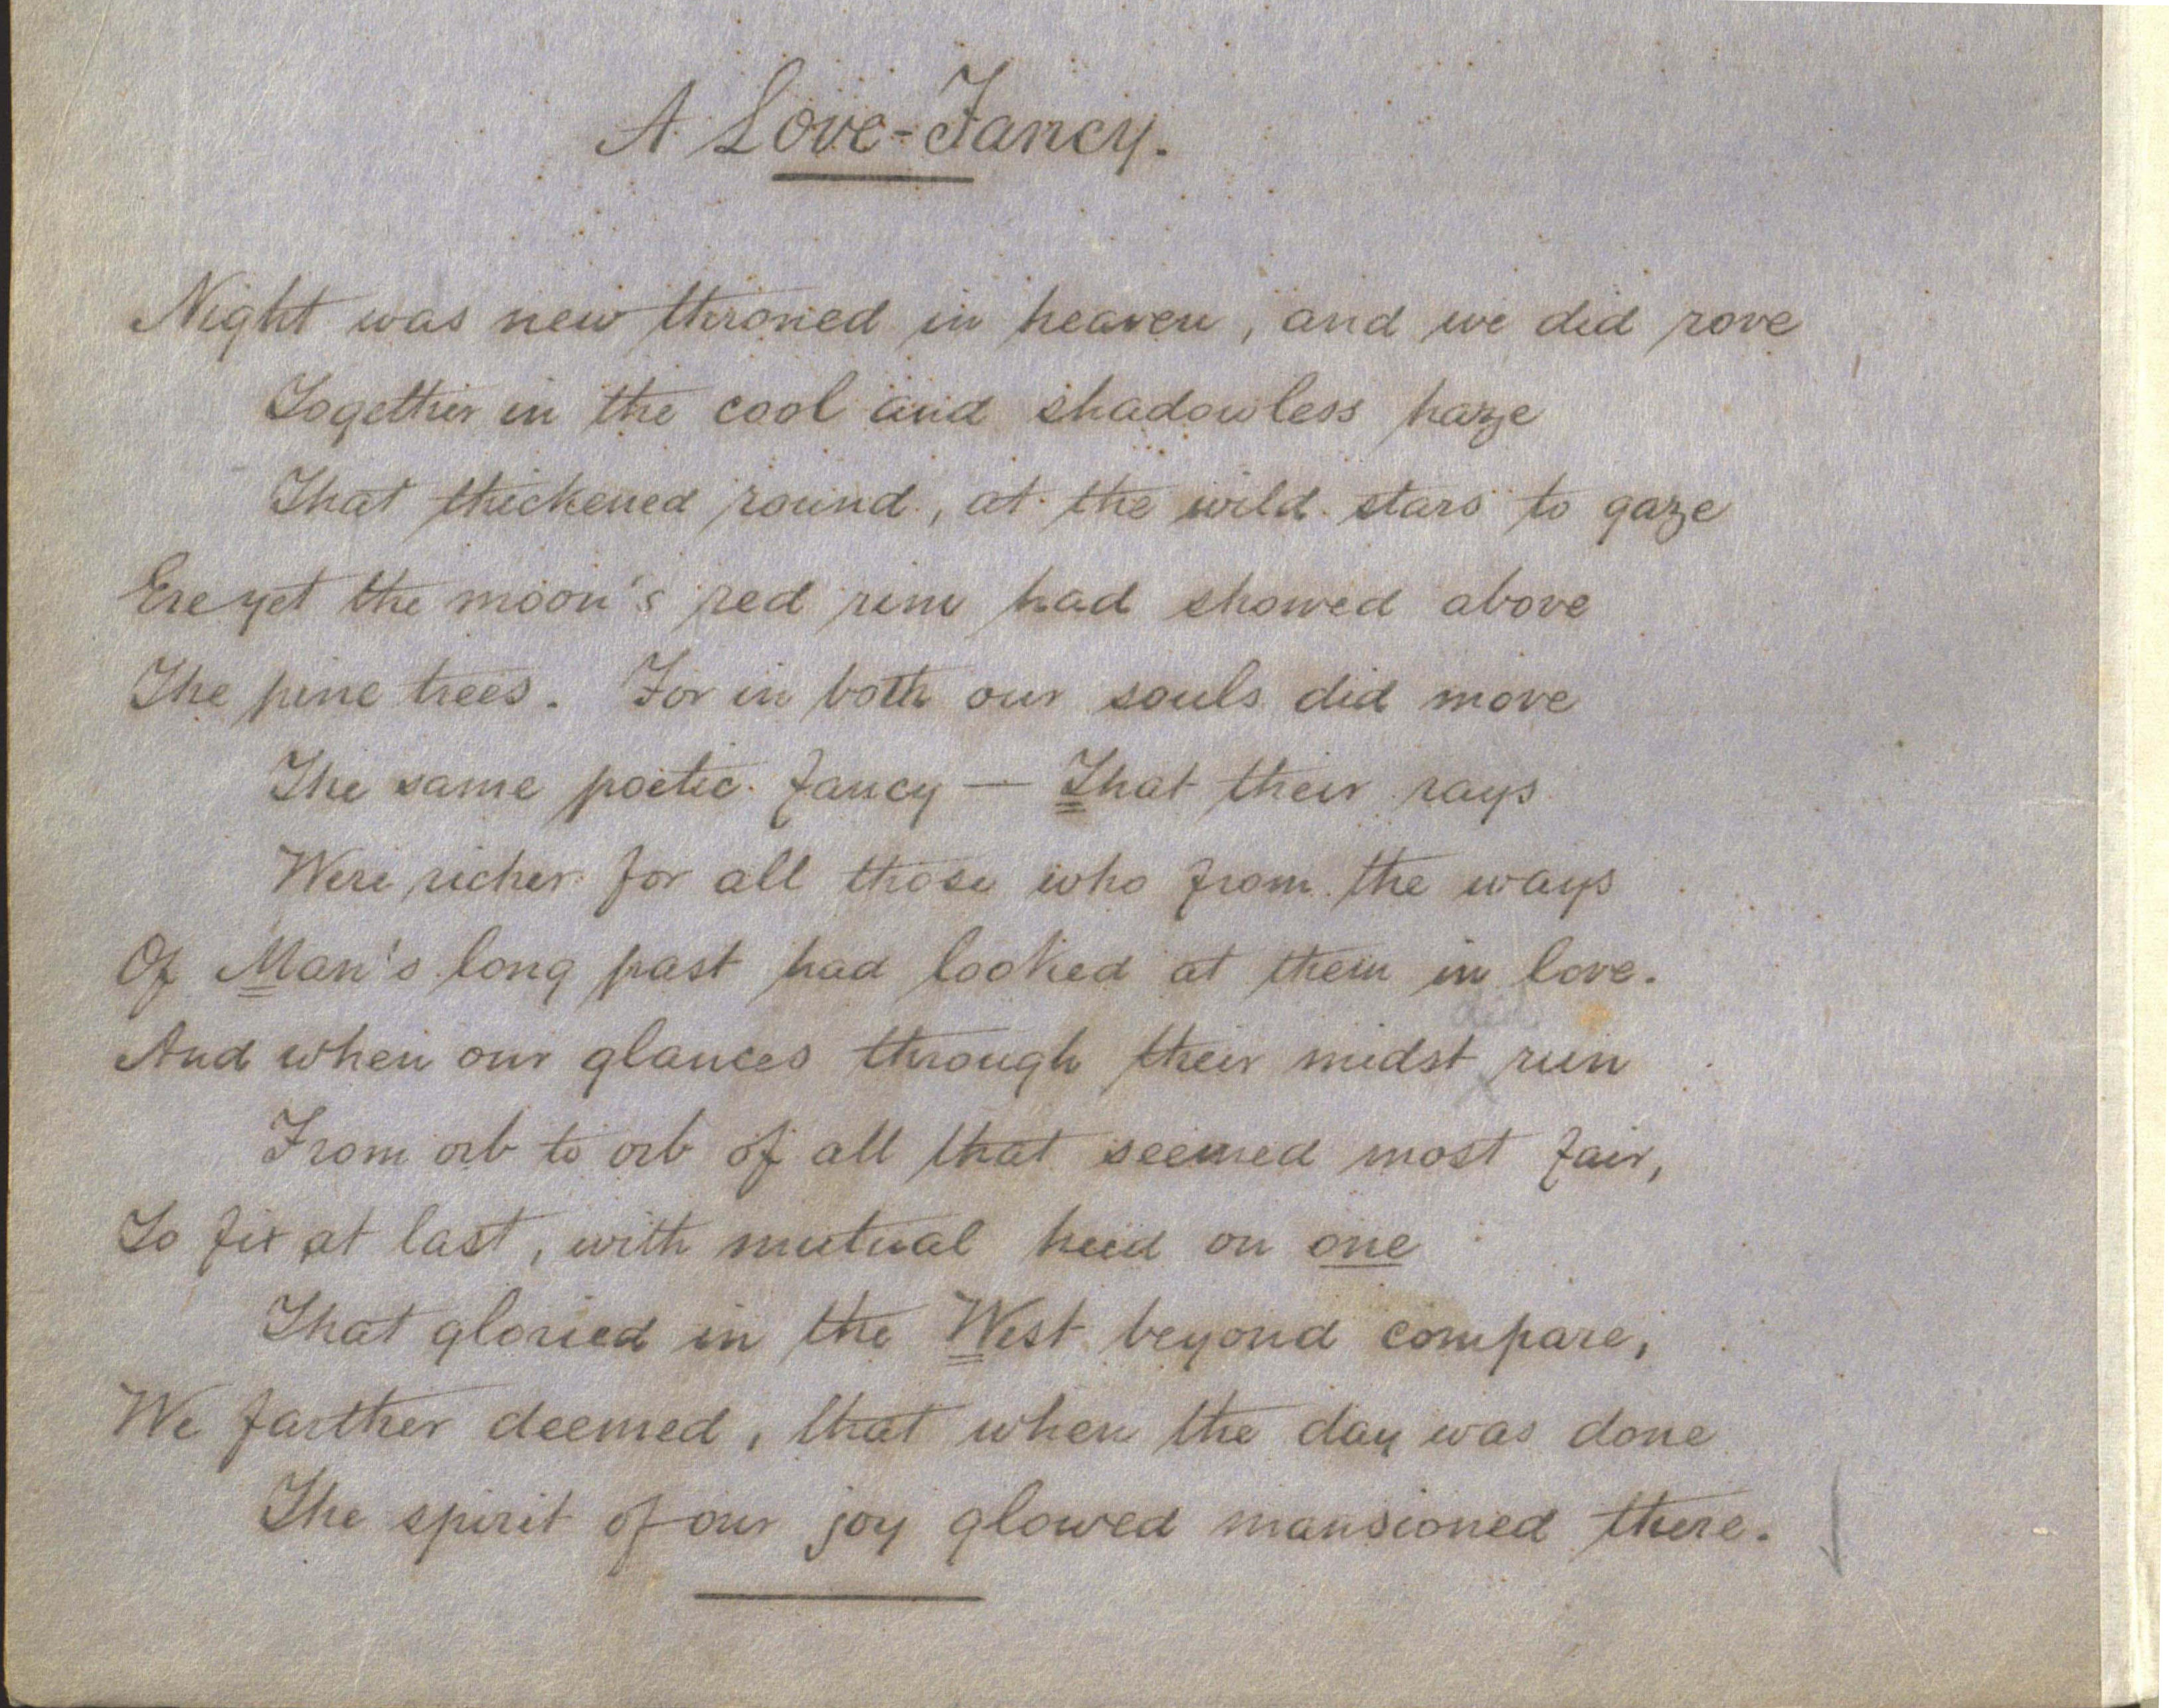 A Love-Fancy.
Night was new throned in heaven, and we did rove
Together in the cool and shadowless haze
That thickened round, at the wild stars to gaze
Ere yet the moon's red rim had showed above
The pine trees. For in both our souls did move
The same poetic fancy — That their rays
Were richer for all those who from the ways
Of Man's long past had looked at them in love.
did
And when our glances through their midst run
From orb to orb of all that seemed most fair,
To fix at last, with mutual heed on one
That gloried in the West beyond compare,
We farther deemed, that when the day was done
The spirit of our joy glowed mansioned there.